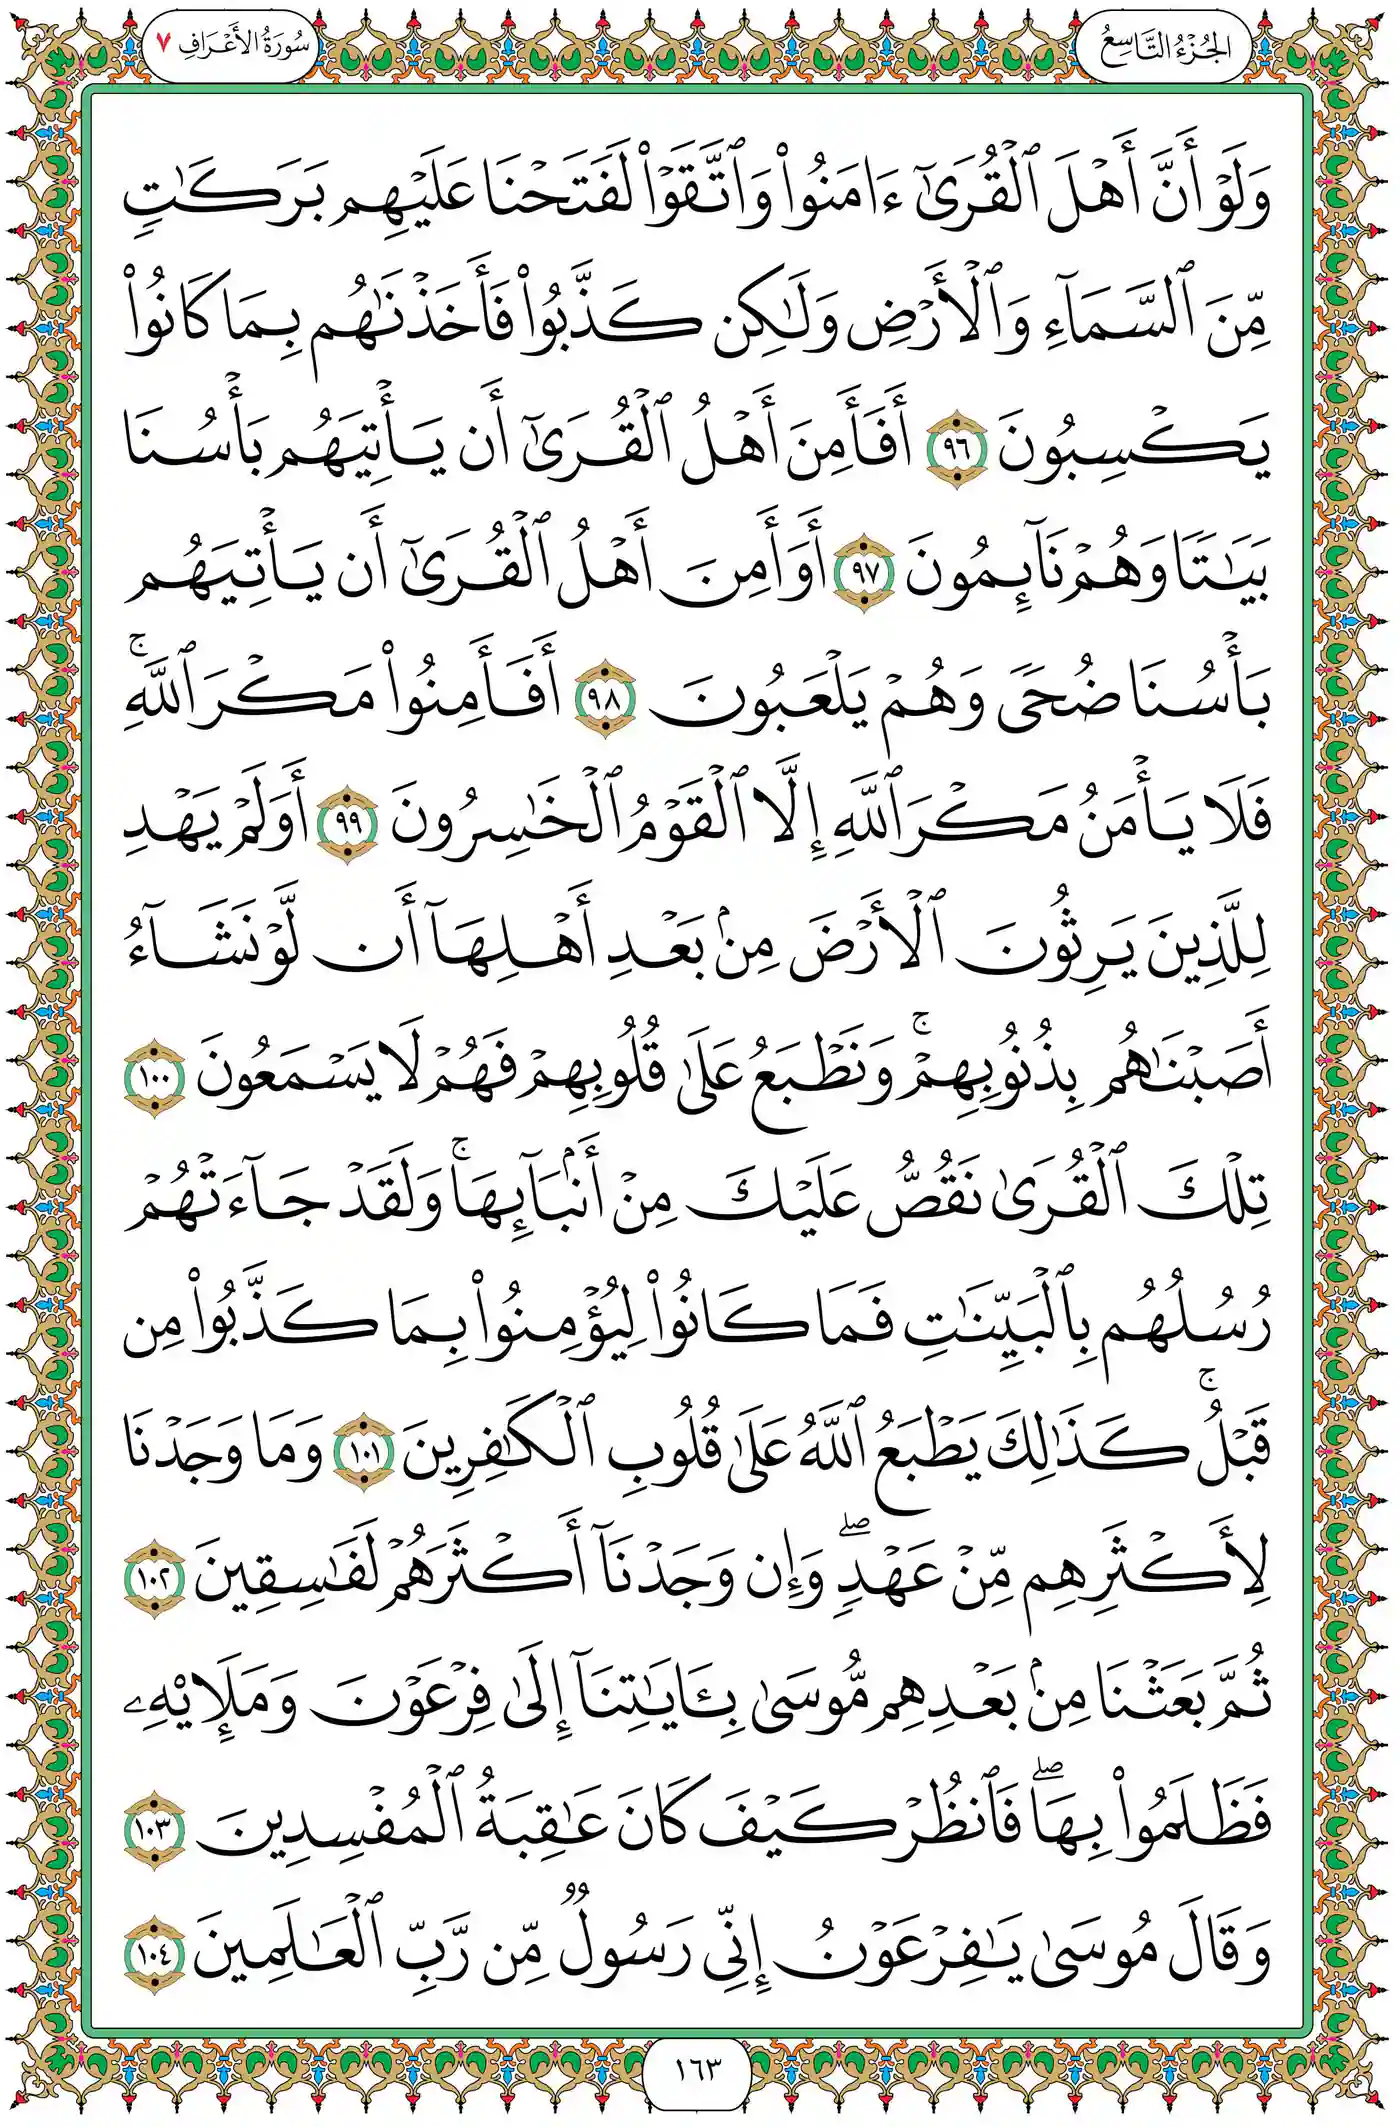 الجُزْءُ التَّاسِعُ
سُورَةُ الأَعْرَافِ ٧
وَلَوْ أَنَّ أَهْلَ ٱلْقُرَىٰٓ ءَامَنُوا۟ وَٱتَّقَوْا۟ لَفَتَحْنَا عَلَيْهِم بَرَكَٰتٍ
مِّنَ ٱلسَّمَآءِ وَٱلْأَرْضِ وَلَٰكِن كَذَّبُوا۟ فَأَخَذْنَٰهُم بِمَا كَانُوا۟
يَكْسِبُونَ ٩٦ أَفَأَمِنَ أَهْلُ ٱلْقُرَىٰٓ أَن يَأْتِيَهُم بَأْسُنَا
بَيَٰتًا وَهُمْ نَآئِمُونَ ٩٧ أَوَأَمِنَ أَهْلُ ٱلْقُرَىٰٓ أَن يَأْتِيَهُم
بَأْسُنَا ضُحًى وَهُمْ يَلْعَبُونَ ٩٨ أَفَأَمِنُوا۟ مَكْرَ ٱللَّهِ ۚ
فَلَا يَأْمَنُ مَكْرَ ٱللَّهِ إِلَّا ٱلْقَوْمُ ٱلْخَٰسِرُونَ ٩٩ أَوَلَمْ يَهْدِ
لِلَّذِينَ يَرِثُونَ ٱلْأَرْضَ مِنۢ بَعْدِ أَهْلِهَآ أَن لَّوْ نَشَآءُ
أَصَبْنَٰهُم بِذُنُوبِهِمْ ۚ وَنَطْبَعُ عَلَىٰ قُلُوبِهِمْ فَهُمْ لَا يَسْمَعُونَ ١٠٠
تِلْكَ ٱلْقُرَىٰ نَقُصُّ عَلَيْكَ مِنْ أَنۢبَآئِهَا ۚ وَلَقَدْ جَآءَتْهُمْ
رُسُلُهُم بِٱلْبَيِّنَٰتِ فَمَا كَانُوا۟ لِيُؤْمِنُوا۟ بِمَا كَذَّبُوا۟ مِن
قَبْلُ ۚ كَذَٰلِكَ يَطْبَعُ ٱللَّهُ عَلَىٰ قُلُوبِ ٱلْكَٰفِرِينَ ١٠١ وَمَا وَجَدْنَا
لِأَكْثَرِهِم مِّنْ عَهْدٍ ۖ وَإِن وَجَدْنَآ أَكْثَرَهُمْ لَفَٰسِقِينَ ١٠٢
ثُمَّ بَعَثْنَا مِنۢ بَعْدِهِم مُّوسَىٰ بِـَٔايَٰتِنَآ إِلَىٰ فِرْعَوْنَ وَمَلَإِي۟هِۦ
فَظَلَمُوا۟ بِهَا ۖ فَٱنظُرْ كَيْفَ كَانَ عَٰقِبَةُ ٱلْمُفْسِدِينَ ١٠٣
وَقَالَ مُوسَىٰ يَٰفِرْعَوْنُ إِنِّى رَسُولٌ مِّن رَّبِّ ٱلْعَٰلَمِينَ ١٠٤
١٦٣